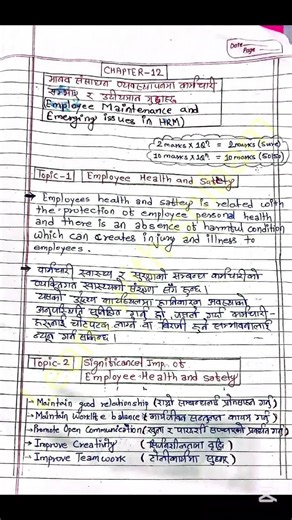 Date
Page
CHAPTER-12
मानव संसाधन व्यवस्थापनमा कर्मचारी
सम्भार र उदीयमान मुद्दाहरू
(Employee Maintenance and
Emerging issues in HRM)
2 marks × 1Qⁿ = 2 marks (sure)
10 marks × 1Qⁿ = 10 marks (50/50)
Topic-1 Employee Health and Saftety
Employees health and saftey is related with
the protection of employee personal health
and there is an absence of harmful condition
which can creates injury and illness to
employees.
कर्मचारी स्वास्थ्य र सुरक्षाको सम्बन्ध कर्मचारीको
व्यक्तिगत स्वास्थ्यको संरक्षण सँग हुन्छ।
यसको उद्देश्य कार्यस्थलमा हानिकारक अवस्थाको
अनुपस्थिति सुनिश्चित गर्नु हो जसले गर्दा कर्मचारी-
हरूलाई चोटपटक लाग्ने वा बिरामी हुने सम्भावनालाई
न्यून गर्न सकिन्छ।
Topic-2 Significance/Imp. of
Employee Health and safety
→ Maintain good relationship (राम्रो सम्बन्धलाई प्रोत्साहन गर्नु)
→ Maintain worklife balance (कार्यजीवन सन्तुलन कायम गर्नु)
→ Promote Open Communication (खुला र पारदर्शी सञ्चारको प्रवर्द्धन गर्नु)
→ Improve Creativity (सिर्जनशीलतामा वृद्धि)
→ Improve Team work (टोलीकार्यमा सुधार)